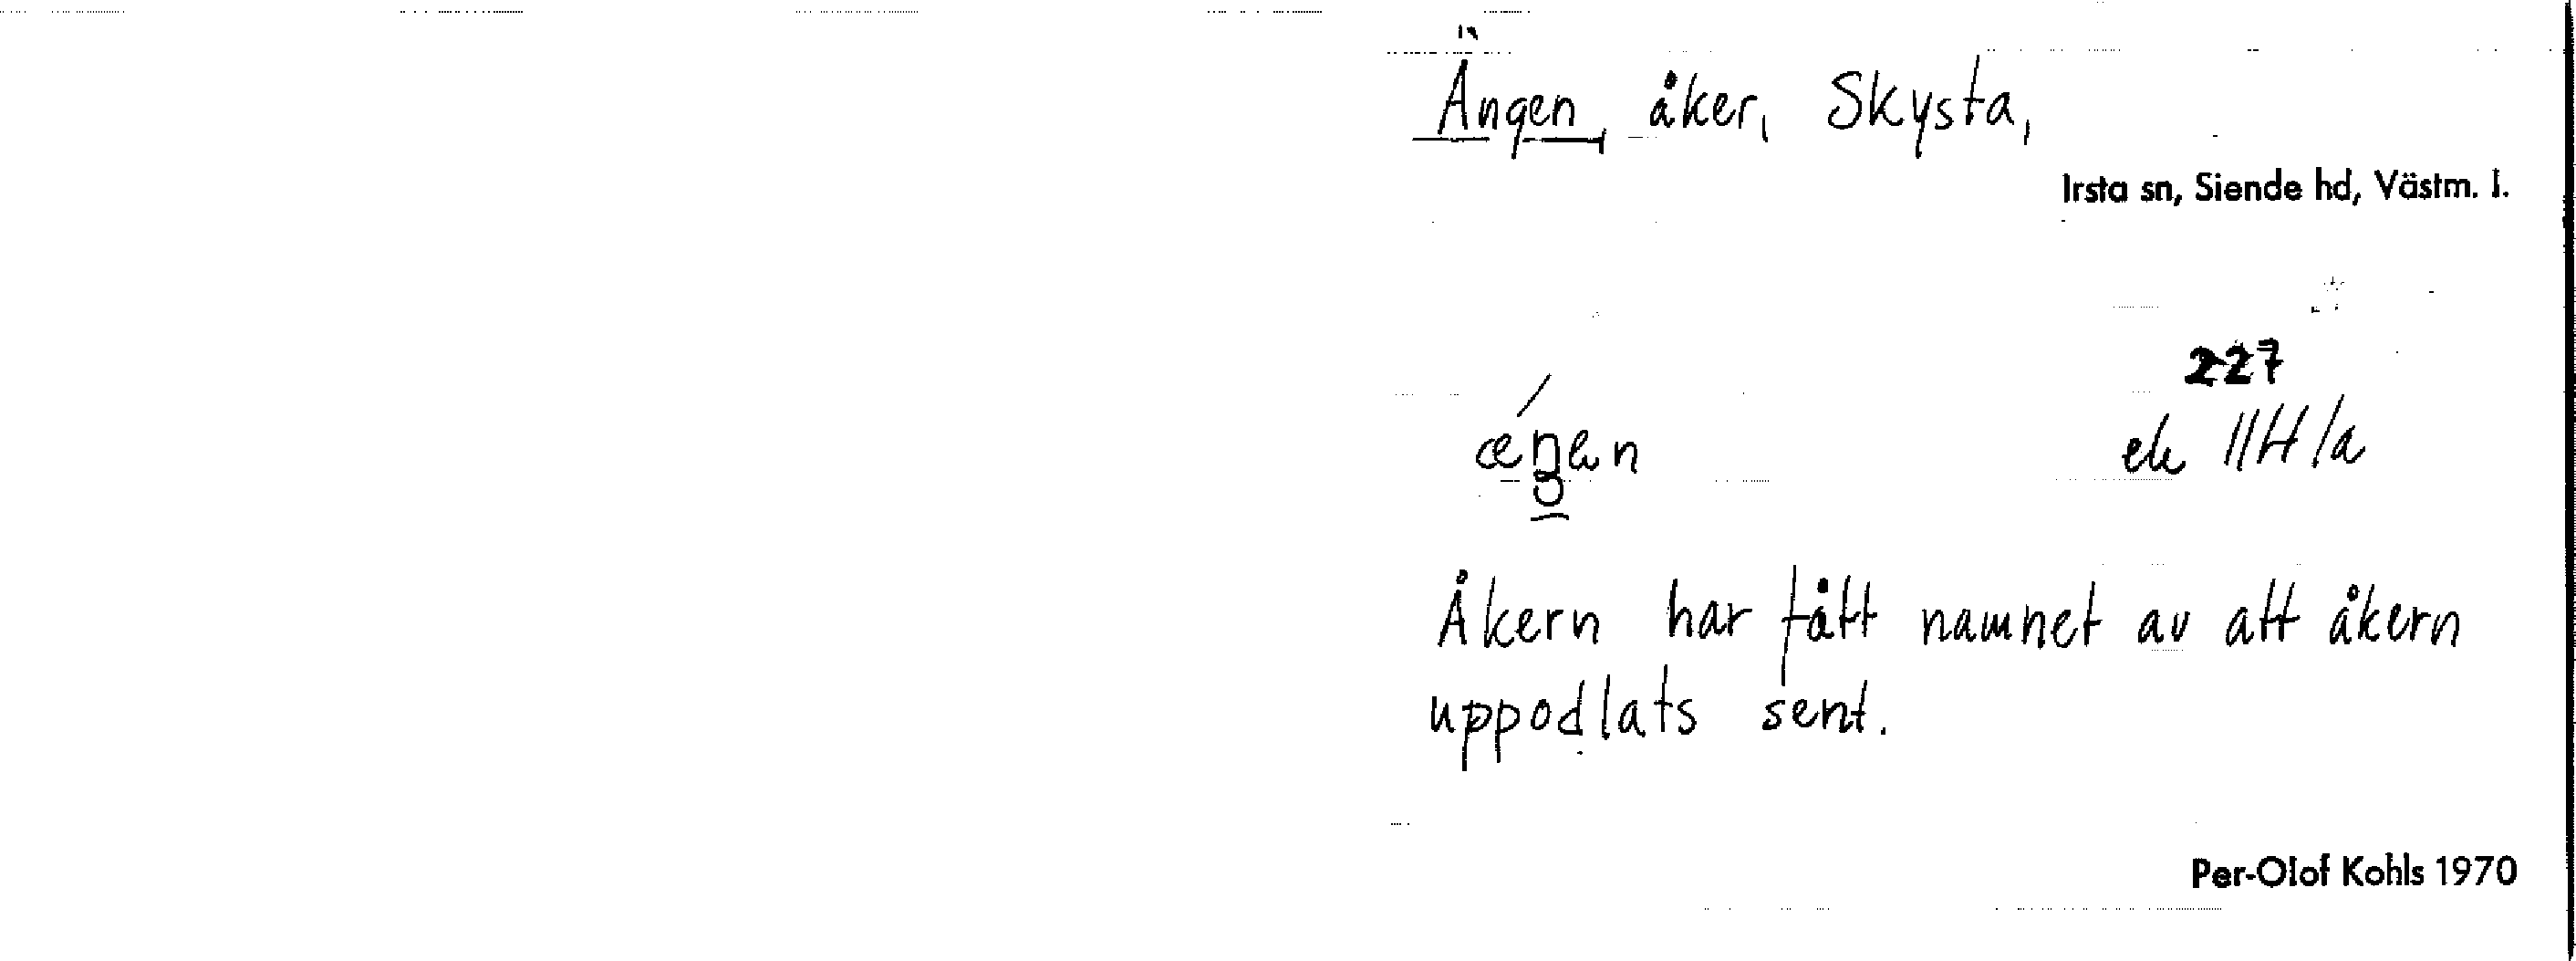 Ängen, åker, Skysta,
Irsta sn, Siende hd, Västm. l.
227
ek 11H/a
Åkern har fått namnet av att åkern
uppodlats sent.
Per-Olof Kohls 1970